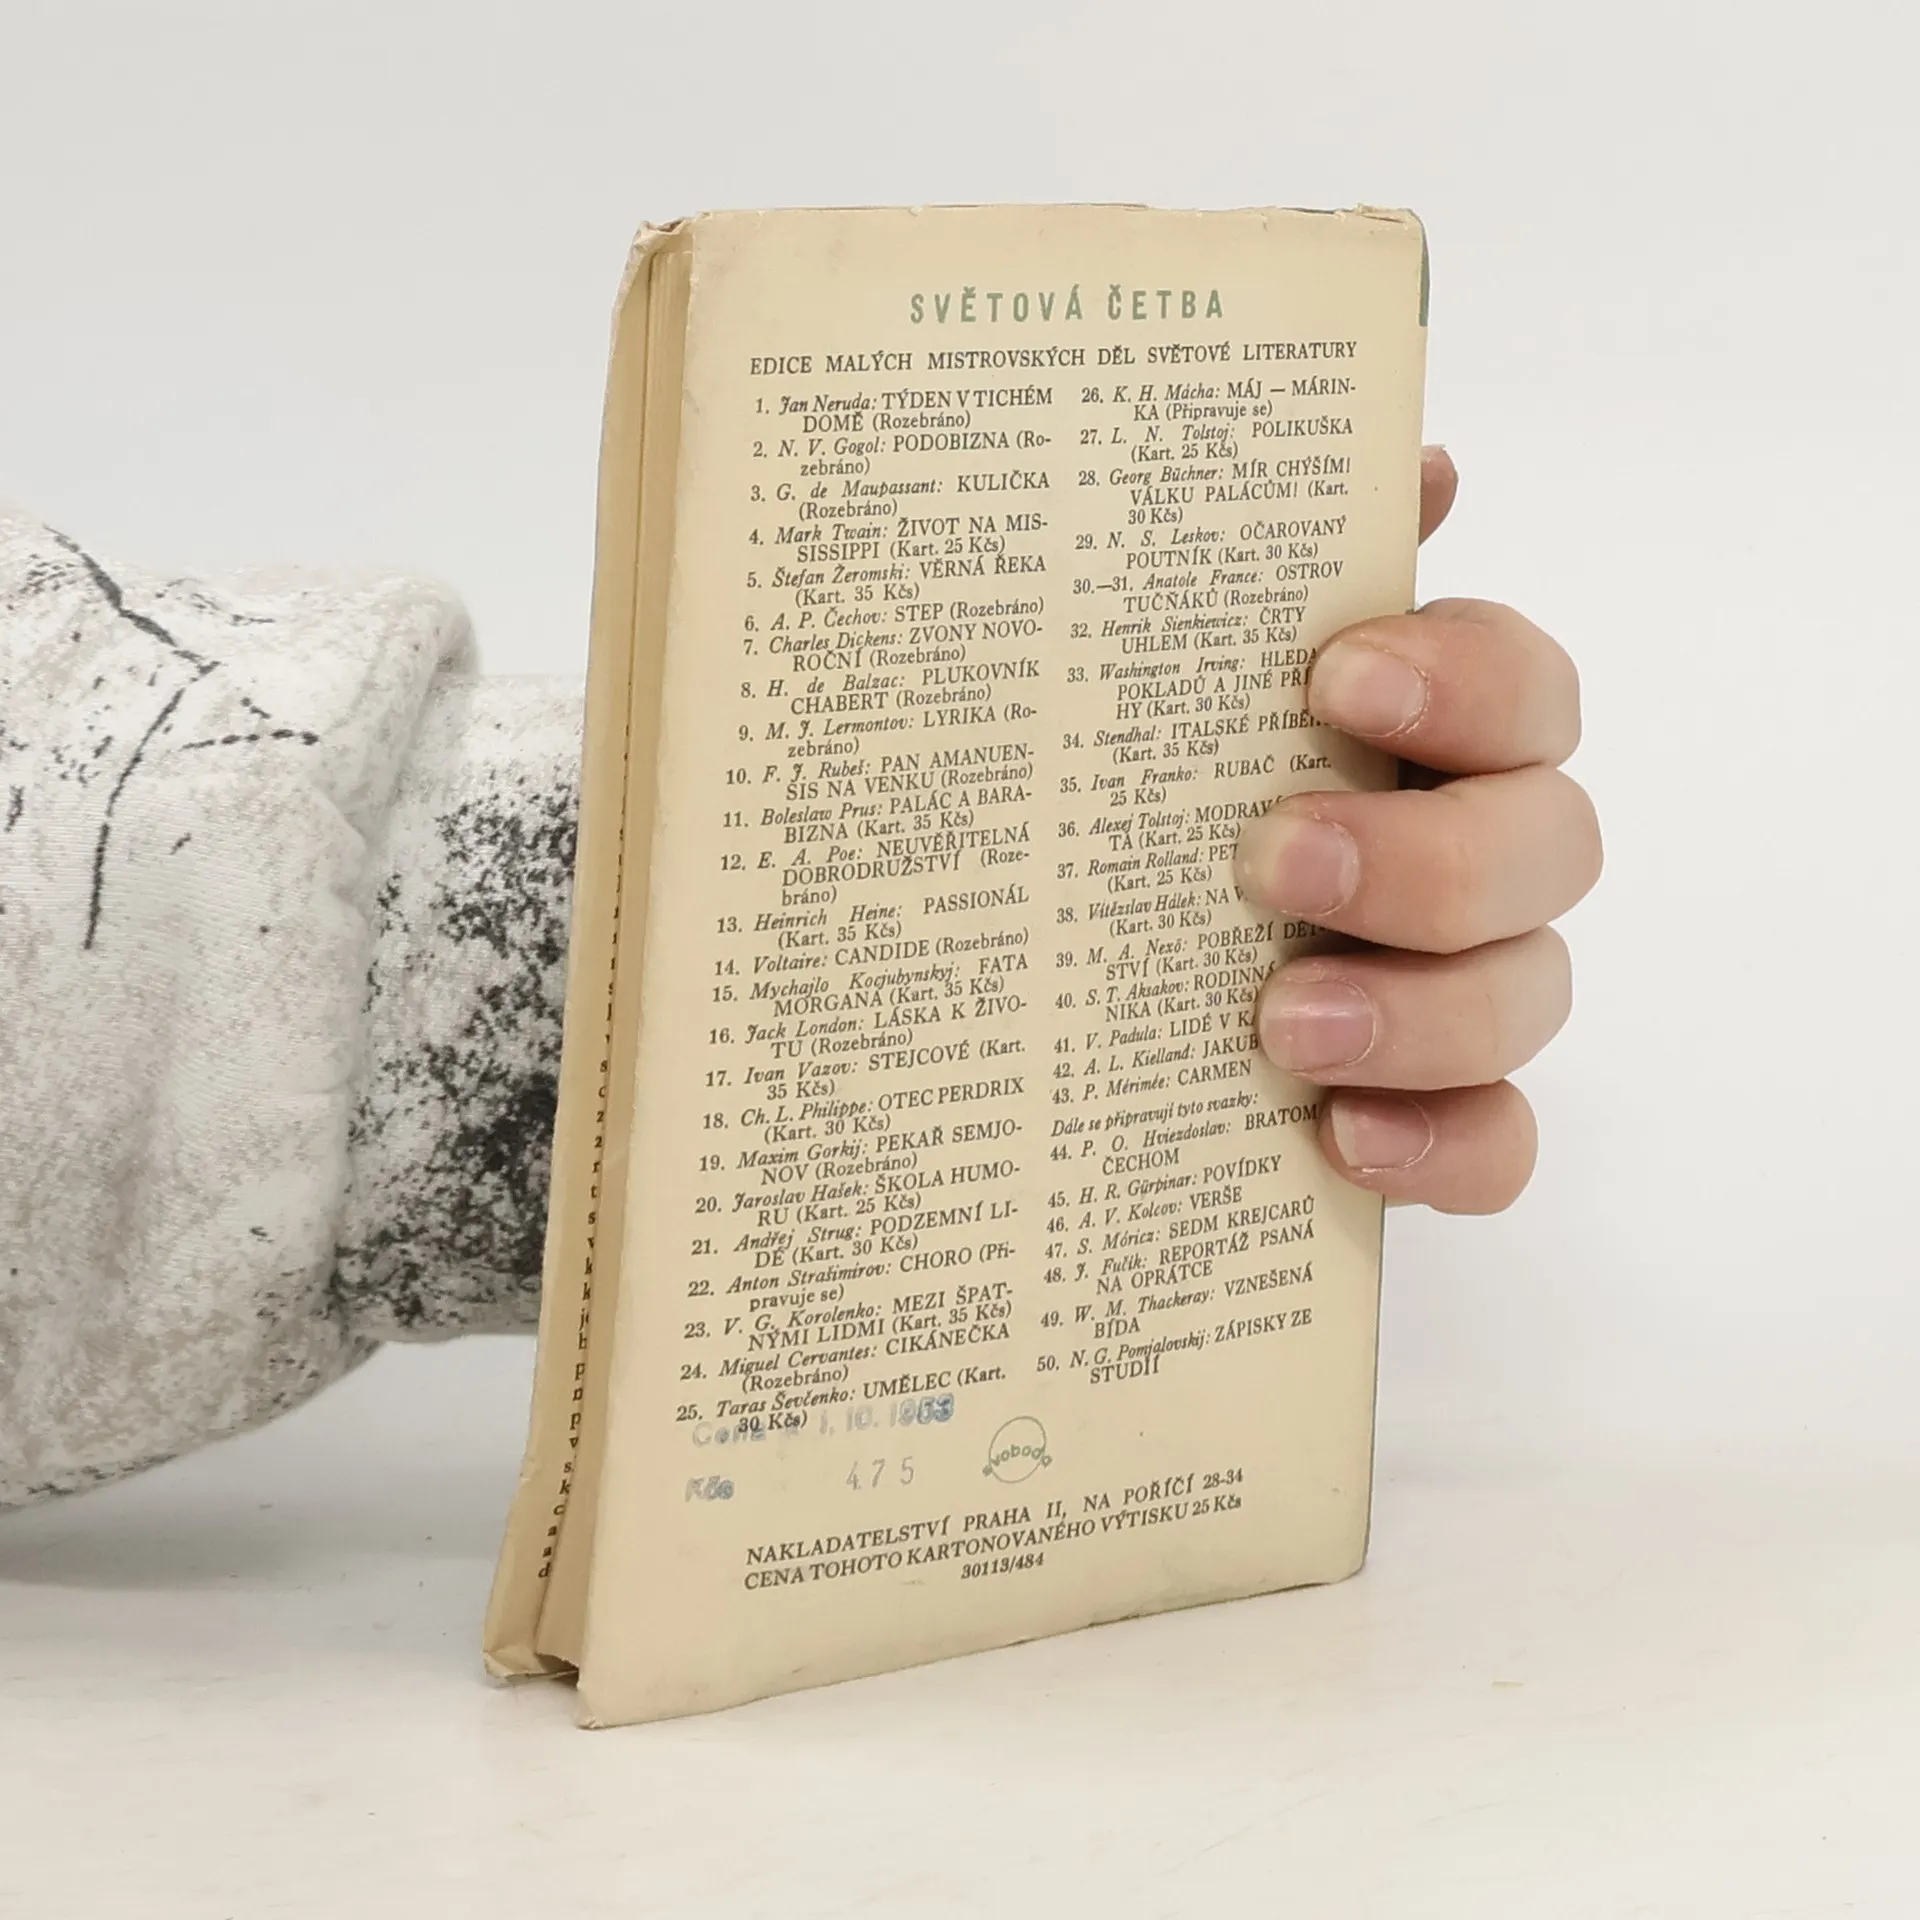 SVĚTOVÁ ČETBA
EDICE MALÝCH MISTROVSKÝCH DĚL SVĚTOVÉ LITERATURY
1. Jan Neruda: TÝDEN V TICHÉM
DOMĚ (Rozebráno)
2. N. V. Gogol: PODOBIZNA (Ro-
zebráno)
3. G. de Maupassant: KULIČKA
(Rozebráno)
4. Mark Twain: ŽIVOT NA MIS-
SISSIPPI (Kart. 25 Kčs)
5. Štefan Žeromski: VĚRNÁ ŘEKA
(Kart. 35 Kčs)
6. A. P. Čechov: STEP (Rozebráno)
7. Charles Dickens: ZVONY NOVO-
ROČNÍ (Rozebráno)
8. H. de Balzac: PLUKOVNÍK
CHABERT (Rozebráno)
9. M. J. Lermontov: LYRIKA (Ro-
zebráno)
10. F. J. Rubeš: PAN AMANUEN-
SIS NA VENKU (Rozebráno)
11. Boleslaw Prus: PALÁC A BARA-
BIZNA (Kart. 35 Kčs)
12. E. A. Poe: NEUVĚŘITELNÁ
DOBRODRUŽSTVÍ (Roze-
bráno)
13. Heinrich Heine: PASSIONÁL
(Kart. 35 Kčs)
14. Voltaire: CANDIDE (Rozebráno)
15. Mychajlo Kocjubynskyj: FATA
MORGANA (Kart. 35 Kčs)
16. Jack London: LÁSKA K ŽIVO-
TU (Rozebráno)
17. Ivan Vazov: STEJCOVÉ (Kart.
35 Kčs)
18. Ch. L. Philippe: OTEC PERDRIX
(Kart. 30 Kčs)
19. Maxim Gorkij: PEKAŘ SEMJO-
NOV (Rozebráno)
20. Jaroslav Hašek: ŠKOLA HUMO-
RU (Kart. 25 Kčs)
21. Andřej Strug: PODZEMNÍ LI-
DÉ (Kart. 30 Kčs)
22. Anton Strašimirov: CHORO (Při-
pravuje se)
23. V. G. Korolenko: MEZI ŠPAT-
NÝMI LIDMI (Kart. 35 Kčs)
24. Miguel Cervantes: CIKÁNEČKA
(Rozebráno)
25. Taras Ševčenko: UMĚLEC (Kart.
30 Kčs)
26. K. H. Mácha: MÁJ — MÁRIN-
KA (Připravuje se)
27. L. N. Tolstoj: POLIKUŠKA
(Kart. 25 Kčs)
28. Georg Büchner: MÍR CHÝŠÍM!
VÁLKU PALÁCŮM! (Kart.
30 Kčs)
29. N. S. Leskov: OČAROVANÝ
POUTNÍK (Kart. 30 Kčs)
30.—31. Anatole France: OSTROV
TUČŇÁKŮ (Rozebráno)
32. Henrik Sienkiewicz: ČRTY
UHLEM (Kart. 35 Kčs)
33. Washington Irving:
POKLADŮ A JINÉ
HY (Kart. 30 Kčs)
34. Stendhal: ITALSKÉ
(Kart. 35 Kčs)
35. Ivan Franko: RUBAČ (Kart.
25 Kčs)
36. Alexej Tolstoj:
TA (Kart. 25 Kčs)
37. Romain Rolland:
(Kart. 25 Kčs)
38. Vítězslav Hálek: NA
(Kart. 30 Kčs)
39. M. A. Nexö: POBŘEŽÍ
STVÍ (Kart. 30 Kčs)
40. S. T. Aksakov:
NIKA (Kart. 30 Kčs)
41. V. Padula: LIDÉ V
42. A. L. Kielland:
43. P. Mérimée: CARMEN
Dále se připravují tyto svazky:
44. P. O. Hviezdoslav: BRATOM
ČECHOM
45. H. R. Gürpinar: POVÍDKY
46. A. V. Kolcov: VERŠE
47. S. Móricz: SEDM KREJCARŮ
48. J. Fučík: REPORTÁŽ PSANÁ
NA OPRÁTCE
49. W. M. Thackeray: VZNEŠENÁ
BÍDA
50. N. G. Pomjalovskij: ZÁPISKY ZE
STUDIÍ
1. 10. 1953
Kčs 4 7 5
Svoboda
NAKLADATELSTVÍ PRAHA II, NA POŘÍČÍ 28-34
CENA TOHOTO KARTONOVANÉHO VÝTISKU 25 Kčs
30113/484